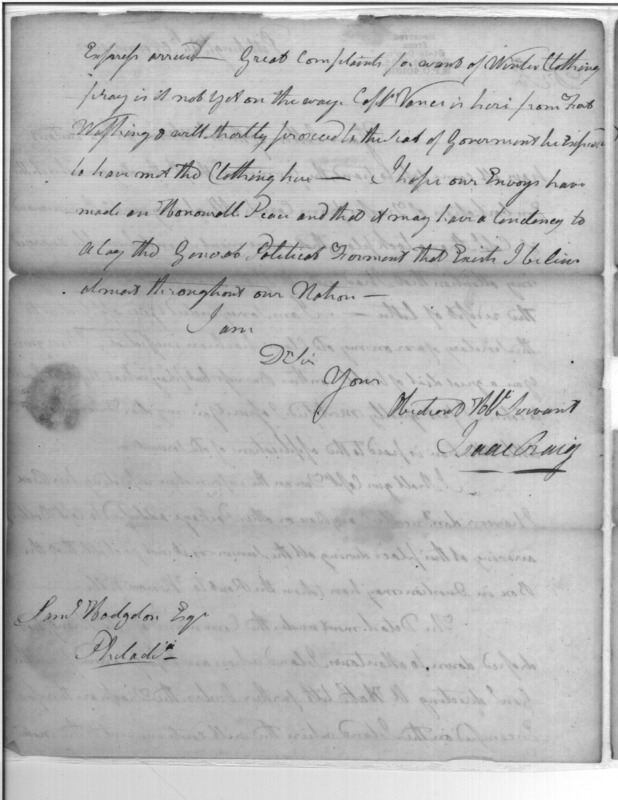 Express arrived — Great Complaints for want of Winter Clothing
pray is it not yet on the way. Capt. Vance is here from Fort
Washing.n will shortly proceed to the seat of Goverment he Expects
to have met the Clothing here — I hope our Envoys have
made an Honorable Peace and that it may have a tendency to
alay the General Political Forment that Exists I believe
almost throughout our Nation —
I am
Dr Sir
Your
Obedient Hble Servant
Isaac Craig
Saml Hodgdon Esqr
Philadia